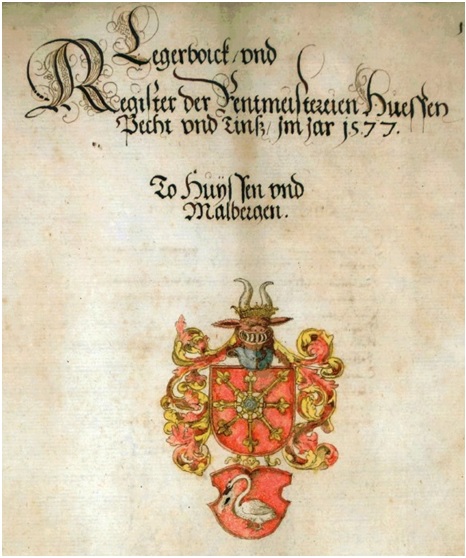 Legerboick, vnd
Register der Rentmeistereien Huessen
Pecht vnd Tinß, Im Jar 1577.
To Huÿssen vnd
Malbergen.